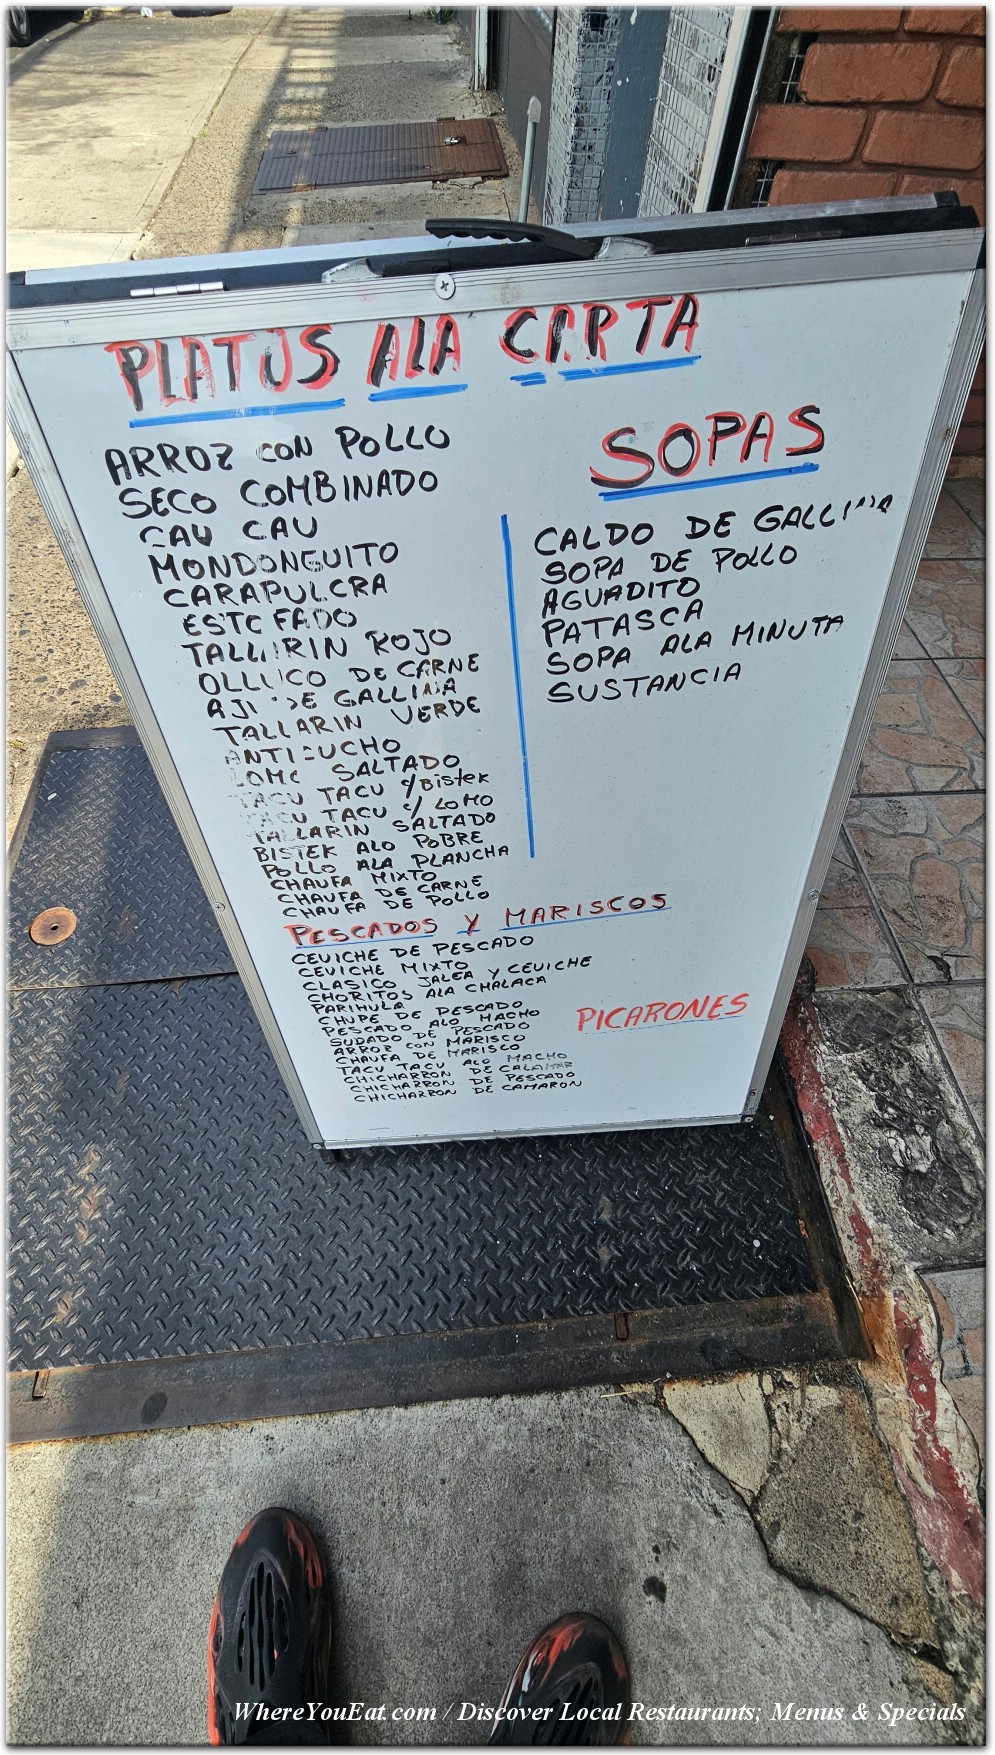 PLATOS ALA CARTA
ARROZ CON POLLO
SECO COMBINADO
CAU CAU
MONDONGUITO
CARAPULCRA
ESTOFADO
TALLIRIN ROJO
OLLUCO DE CARNE
AJI DE GALLINA
TALLARIN VERDE
ANTICUCHO
LOMO SALTADO
TACU TACU c/Bistek
TACU TACU c/ LOMO
TALLARIN SALTADO
BISTEK ALO POBRE
POLLO ALA PLANCHA
CHAUFA MIXTO
CHAUFA DE CARNE
CHAUFA DE POLLO
SOPAS
CALDO DE GALLINA
SOPA DE POLLO
AGUADITO
PATASCA
SOPA ALA MINUTA
SUSTANCIA
PESCADOS Y MARISCOS
CEVICHE DE PESCADO
CEVICHE MIXTO
CLASICO JALEA Y CEVICHE
CHORITOS ALA CHALACA
PARIHULA
CHUPE DE PESCADO
PESCADO ALO MACHO
SUDADO DE PESCADO
ARROZ CON MARISCO
CHAUFA DE MARISCO
TACU TACU ALO MACHO
CHICHARRON DE CALAMAR
CHICHARRON DE PESCADO
CHICHARRON DE CAMARON
PICARONES
WhereYouEat.com / Discover Local Restaurants; Menus & Specials